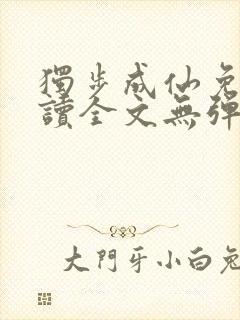 獨步成仙免
讀全文無彈
大門牙小白兔